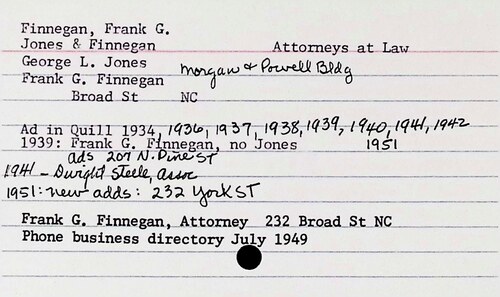 Finnegan, Frank G.
Jones & Finnegan Attorneys at Law
George L. Jones Morgan & Powell Bldg
Frank G. Finnegan
Broad St NC
Ad in Quill 1934, 1936, 1937, 1938, 1939, 1940, 1941, 1942
1939: Frank G. Finnegan, no Jones 1951
ads 207 N. Pine ST
1941 - Dwight Steele, assoc
1951: new adds: 232 York ST
Frank G. Finnegan, Attorney 232 Broad St NC
Phone business directory July 1949